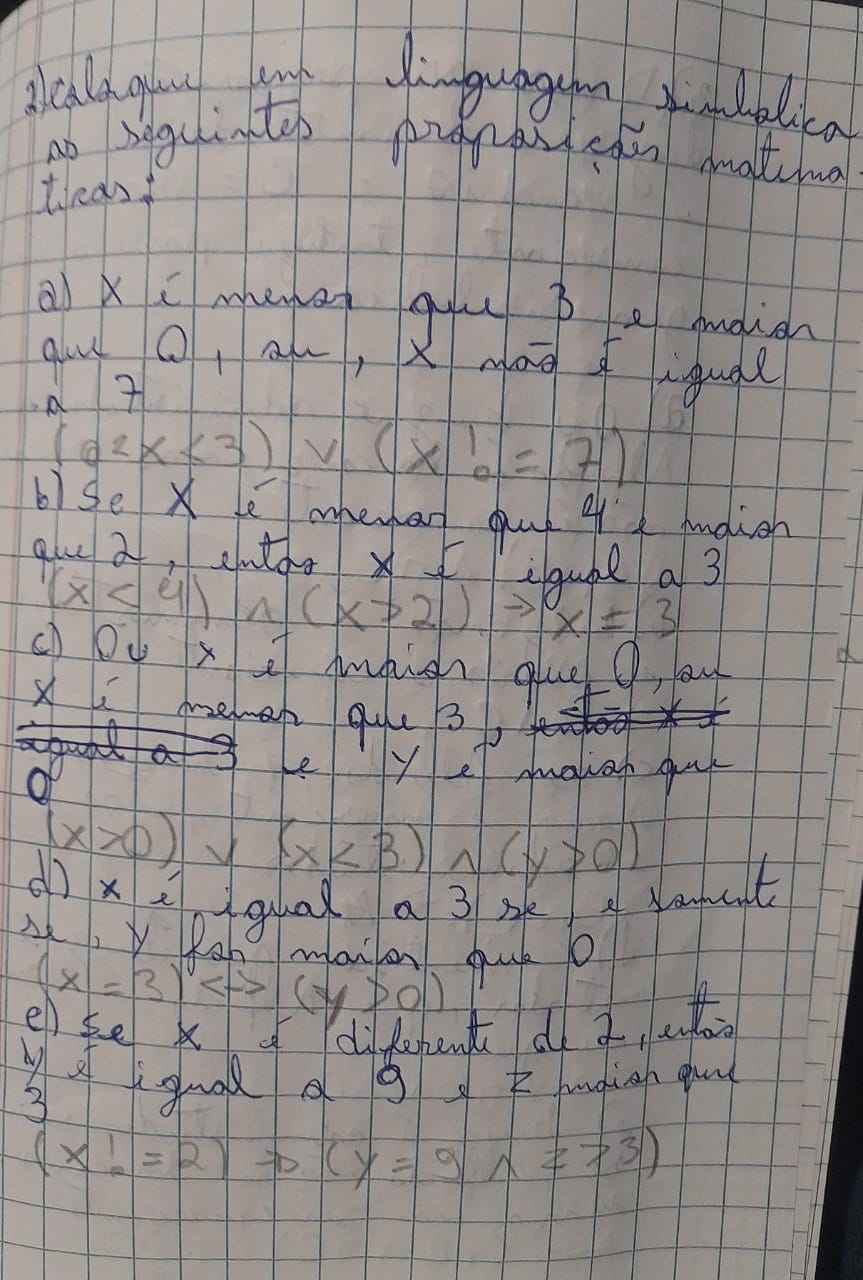 2) Coloque em linguagem simbolica
as seguintes proposições matema-
ticas:
a) X é menor que 3 e maior
que 0, ou, x não é igual
a 7
(0<x<3) ∨ (x != 7)
b) Se X é menor que 4 e maior
que 2, então x é igual a 3
(x < 4) ∧ (x > 2) → x = 3
c) Ou x é maior que 0, ou
x é menor que 3, então x é
igual a 3 e Y é maior que
0
(x>0) ∨ (x<3) ∧ (y>0)
d) x é igual a 3 se, e somente
se, y for maior que 0
(x = 3) <-> (y > 0)
e) Se x é diferente de 2, então
y é igual a 9 e z maior que
3
(x != 2) → (y = 9 ∧ z > 3)